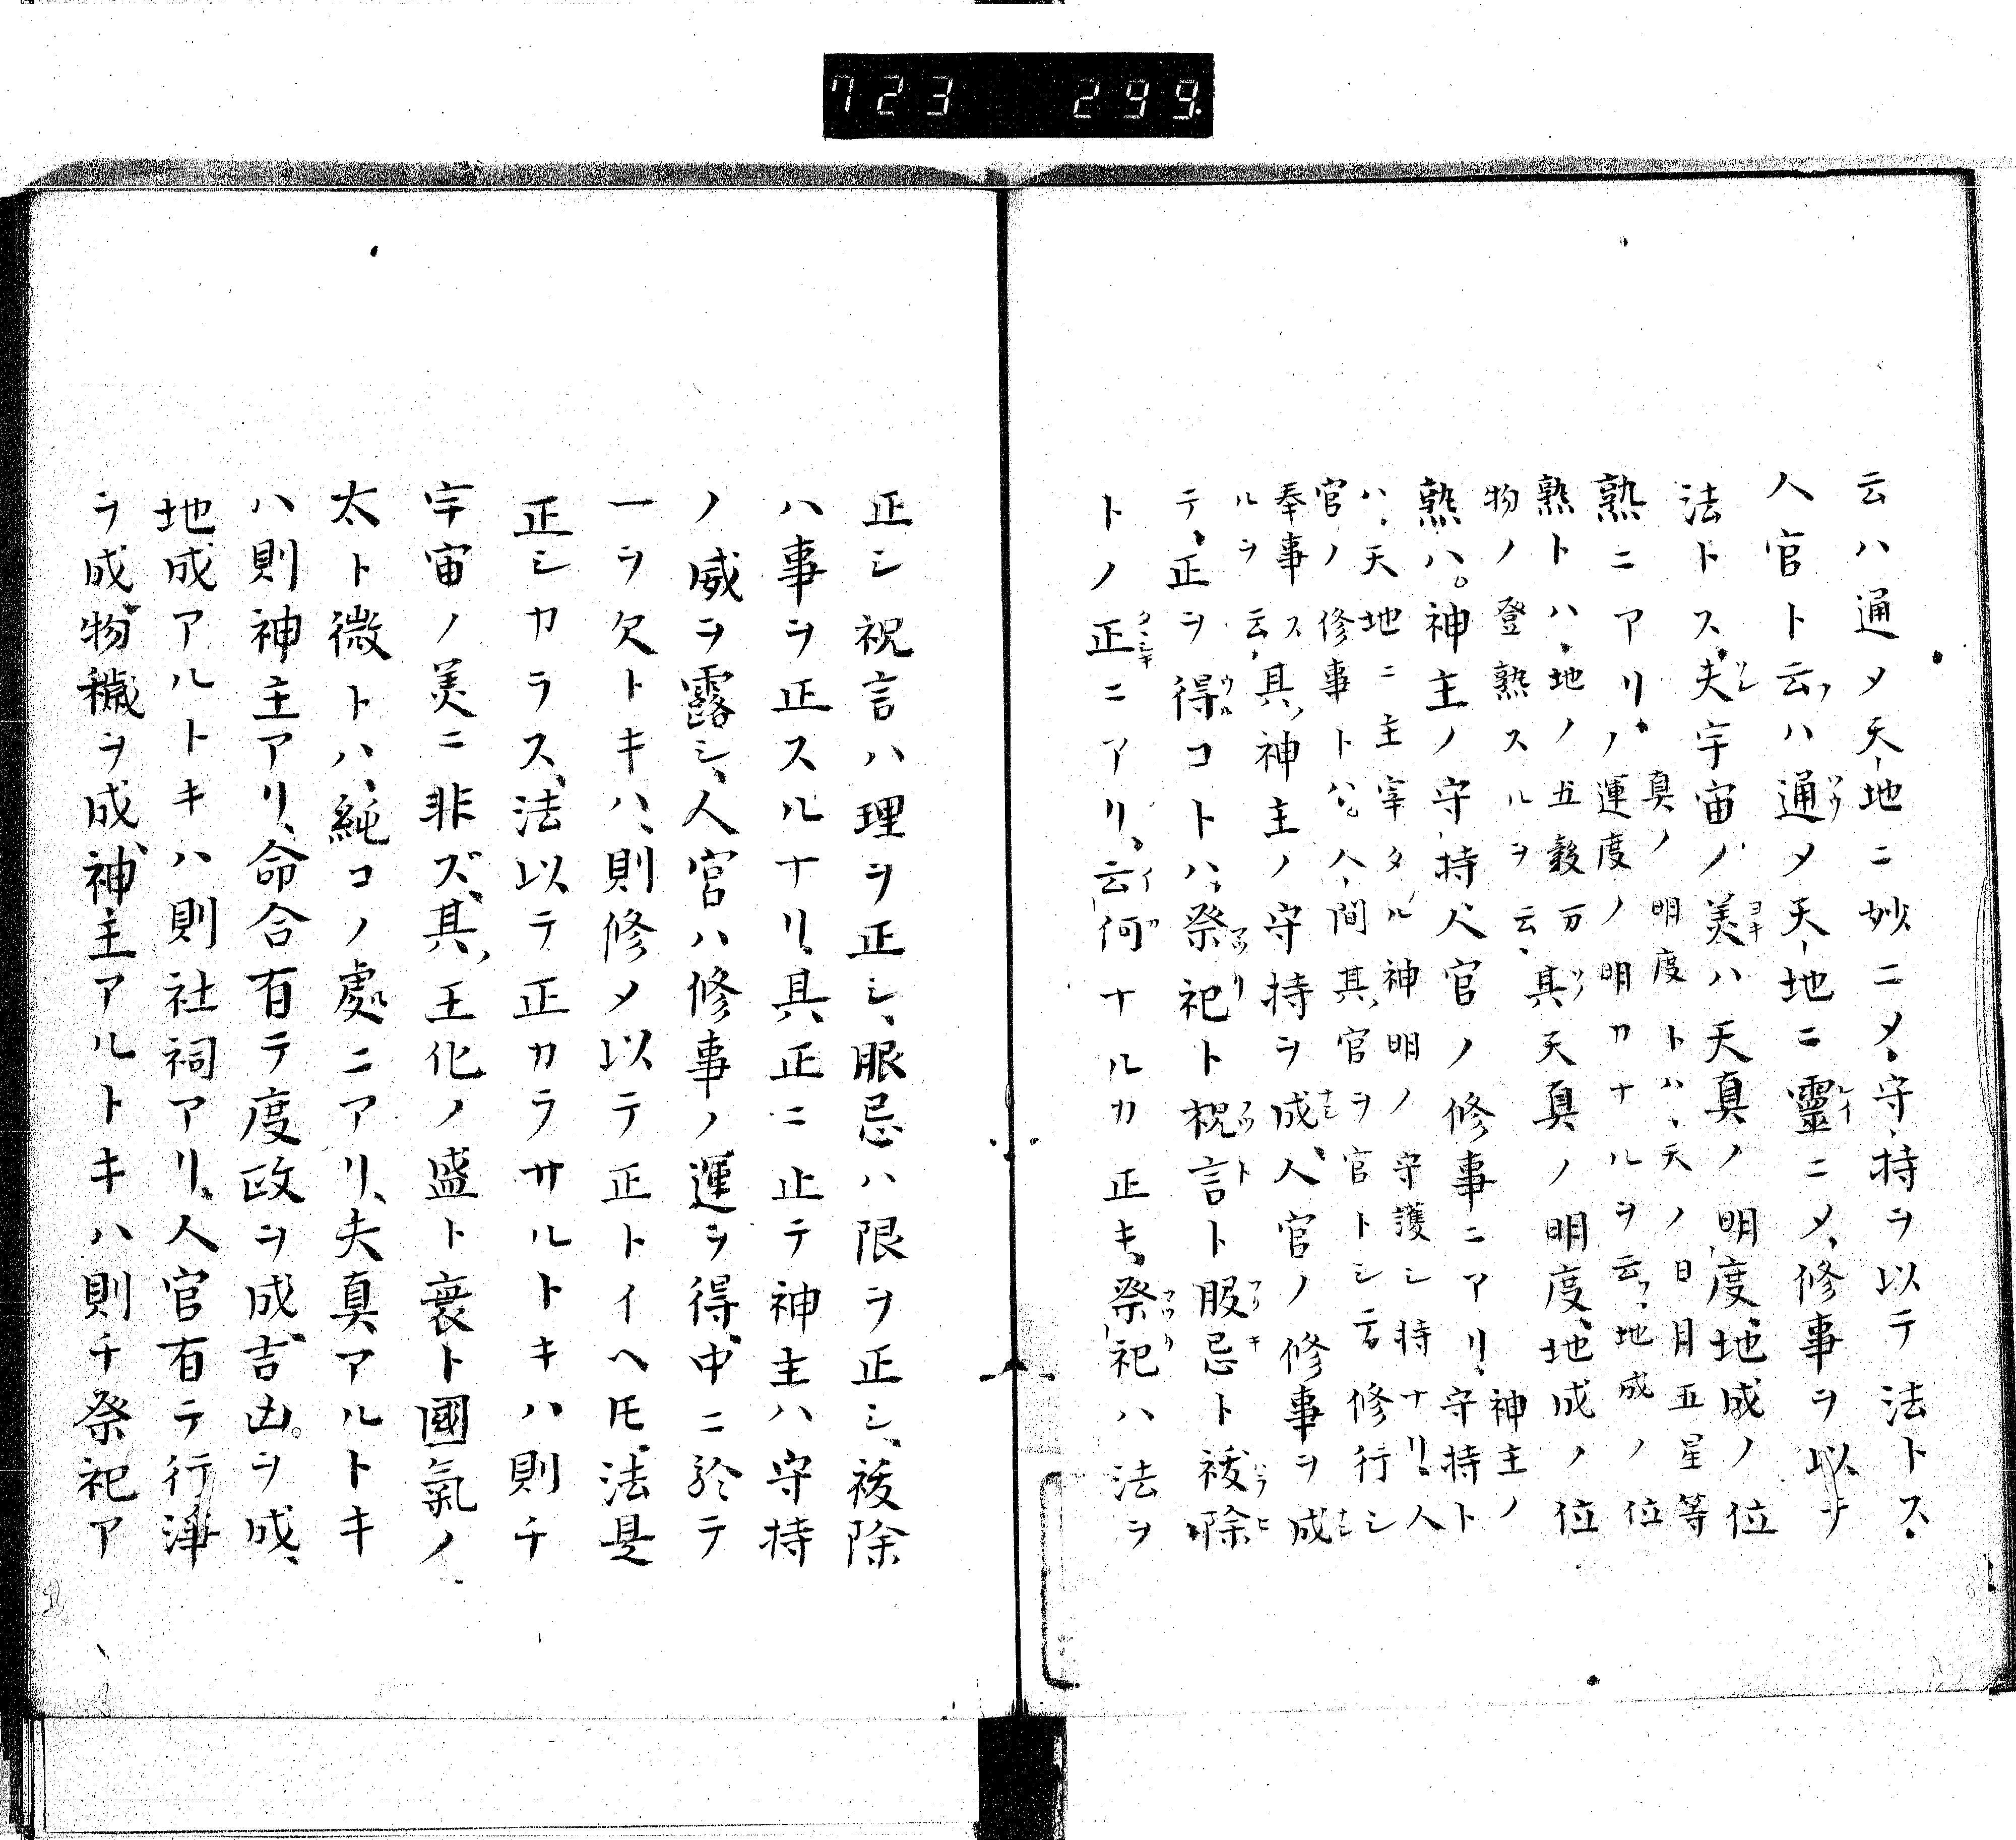 723 299
云ハ通メ天地ニ妙ニメ、守持ヲ以テ法トス、
人官ト云ハ通メ天地ニ靈ニメ、修事ヲ以テ
法トス、夫宇宙ノ美ハ天真ノ明度、地成ノ位
熟ニアリ、真ノ明度トハ、天ノ日月五星等
ノ運度ノ明カナルヲ云、地成ノ位
熟トハ、地ノ五穀万
物ノ登熟スルヲ云、其天真ノ明度、地成ノ位
熟ハ。神主ノ守持人官ノ修事ニアリ、神主ノ
守持ト
ハ、天地ニ主宰タル神明ノ守護シ持ナリ、人
官ノ修事トハ。人間其官ヲ官トシ言修行シ
奉事ス
ルヲ云、其神主ノ守持ヲ成、人官ノ修事ヲ成
テ、正ヲ得コトハ、祭祀ト祝言ト服忌ト祓除
トノ正ニアリ、云何ナルカ正キ、祭祀ハ法ヲ
正シ祝言ハ理ヲ正シ、服忌ハ限ヲ正シ、祓除
ハ事ヲ正スルナリ、具正ニ止テ神主ハ守持
ノ威ヲ露シ、人官ハ修事ノ運ヲ得、中ニ於テ
一ヲ欠トキハ、則修メ以テ正トイヘ𪜈、法是
正シカラス、法以テ正カラサルトキハ則チ
宇宙ノ美ニ非ズ、其王化ノ盛ト衰ト國氣ノ
太ト微トハ、純コノ處ニアリ、夫真アルトキ
ハ則神主アリ、命合有テ度政ヲ成、吉凶。ヲ成、
地成アルトキハ則社祠アリ、人官有テ行淨
ヲ成、物穢ヲ成、神主アルトキハ則チ祭祀ア